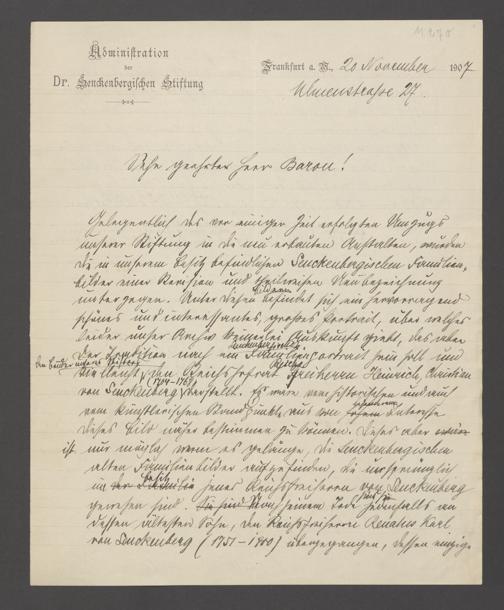 Administration
der
Dr. Senckenbergischen Stiftung
Frankfurt a. M., 20 November 1907
Ulmenstrasse 27.
Sehr geehrter Herr Baron!
Gelegentlich des vor einiger Zeit erfolgten Umzugs
unserer Stiftung in die neu erbauten Anstalten, wurden
die in unserem Besitz befindlichen Senckenbergischen Familien-
bilder einer Revision und theilweisen Neubezeichnung
unterzogen. Unter diesen befindet sich ein hervorragend
schönes und interessantes, großes Portrait, über welches
leider unser Archiv keinerlei Auskunft giebt, das aber
der Tradition nach ein Familienportrait sein soll und
den Bruder unseres Stifters
vielleicht den Reichshofrat Freiherrn Heinrich Christian
von Senckenberg (1704-1768) darstellt. Es wäre vom historischen und auch
vom künstlerischen Standpunkte aus von Interesse
dieses Bild näher bestimmen zu können. Dieses aber
ist nur möglich wenn es gelänge, die Senckenbergischen
alten Familienbilder aufzufinden, die ursprünglich
im Besitz jenes Reichsfreiherrn von Senckenberg
gewesen sind. Nach seinem Tode sind sie jedenfalls an
dessen ältesten Sohn, den Reichsfreiherrn Renatus Karl
von Senckenberg (1751-1800) übergegangen, dessen einzige